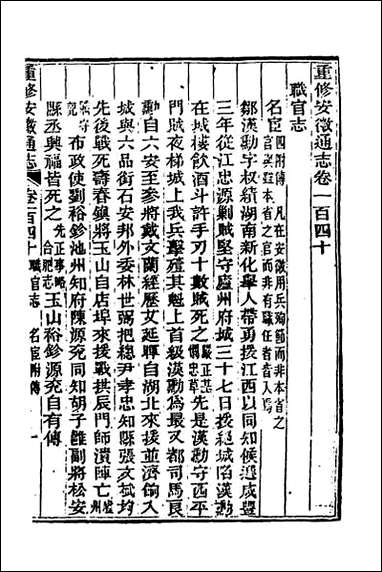 重修安徽通志卷一百四十
職官志
名宦四附傳 凡在安徽用兵殉節而非本省之官與雖本省之官而非有職任者皆入焉
鄒漢勳字叔績湖南新化舉人帶勇援江西以同知候選咸豐
三年從江忠源剿賊堅守廬州府城三十七日援絕城陷漢勳
在城樓飲酒斗許手刃十數賊死之嚴正基憫忠草先是漢勳守西平
門賊夜梯城上我兵擊殪其魁上首級漢勳為最又都司馬良
勳自六安至參將戴文蘭經歷文延暉自湖北來援並濟餉入
城與六品銜石安邦外委林世弼把總尹孝忠知縣張文斌均
先後戰死壽春鎮將玉山自店埠來援戰拱辰門師潰陣亡
布政使劉裕鉁池州知府陳源兖同知胡子雝副將松安
縣丞興福皆死之先正事略合肥志玉山裕鉁源兖自有傳
重修安徽通志 卷一百四十 職官志 名宦附傳 一